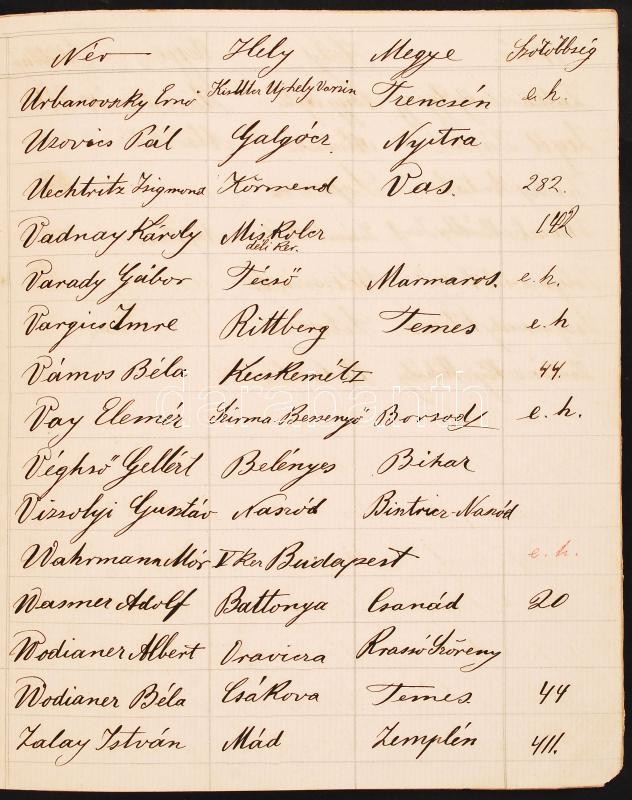 Név Hely Megye Szótöbbség
Urbanovszky Ernő Ujhely Trencsén e.h.
Uzovics Pál Galgócz Nyitra
Uechtritz Zsigmond Körmend Vas. 282.
Vadnay Károly Miskolcz 142
déli ker.
Varady Gábor Técső Marmaros. e.h.
Vargics Imre Rittberg Temes e.h
Vámos Béla Kecskemét I 44.
Vay Elemér Szirma Bessenyő Borsod e.h.
Véghső Gellért Belényes Bihar
Vizsolyi Gusztáv Naszód Bintricz-Naszód
Wahrmann Mór V ker Budapest e.h.
Wasmer Adolf Battonya Csanád 20
Wodianer Albert Oravicza Krassó Szörény
Wodianer Béla Csákova Temes. 44
Zalay István Mád Zemplén 411.
darabanth